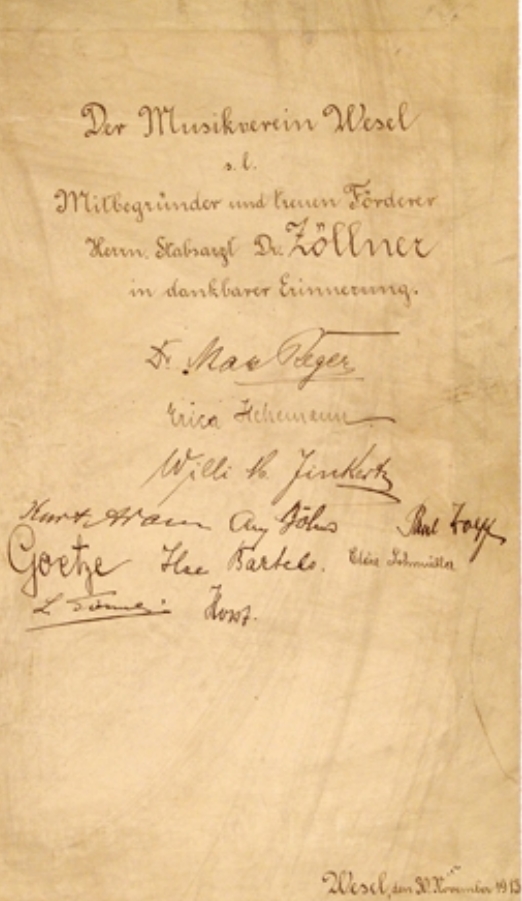 Der Musikverein Wesel
s. l.
Mitbegründer und treuen Förderer
Herrn Stabsarzt Dr. Zöllner
in dankbarer Erinnerung.
Dr. Max Reger
Erica Hehemann
Willi Jinkertz
Kurt Aug Böhs Paul Wolff
Goetze Ilse Bartels. Lohmüller
Horst.
Wesel, den 30. November 1913